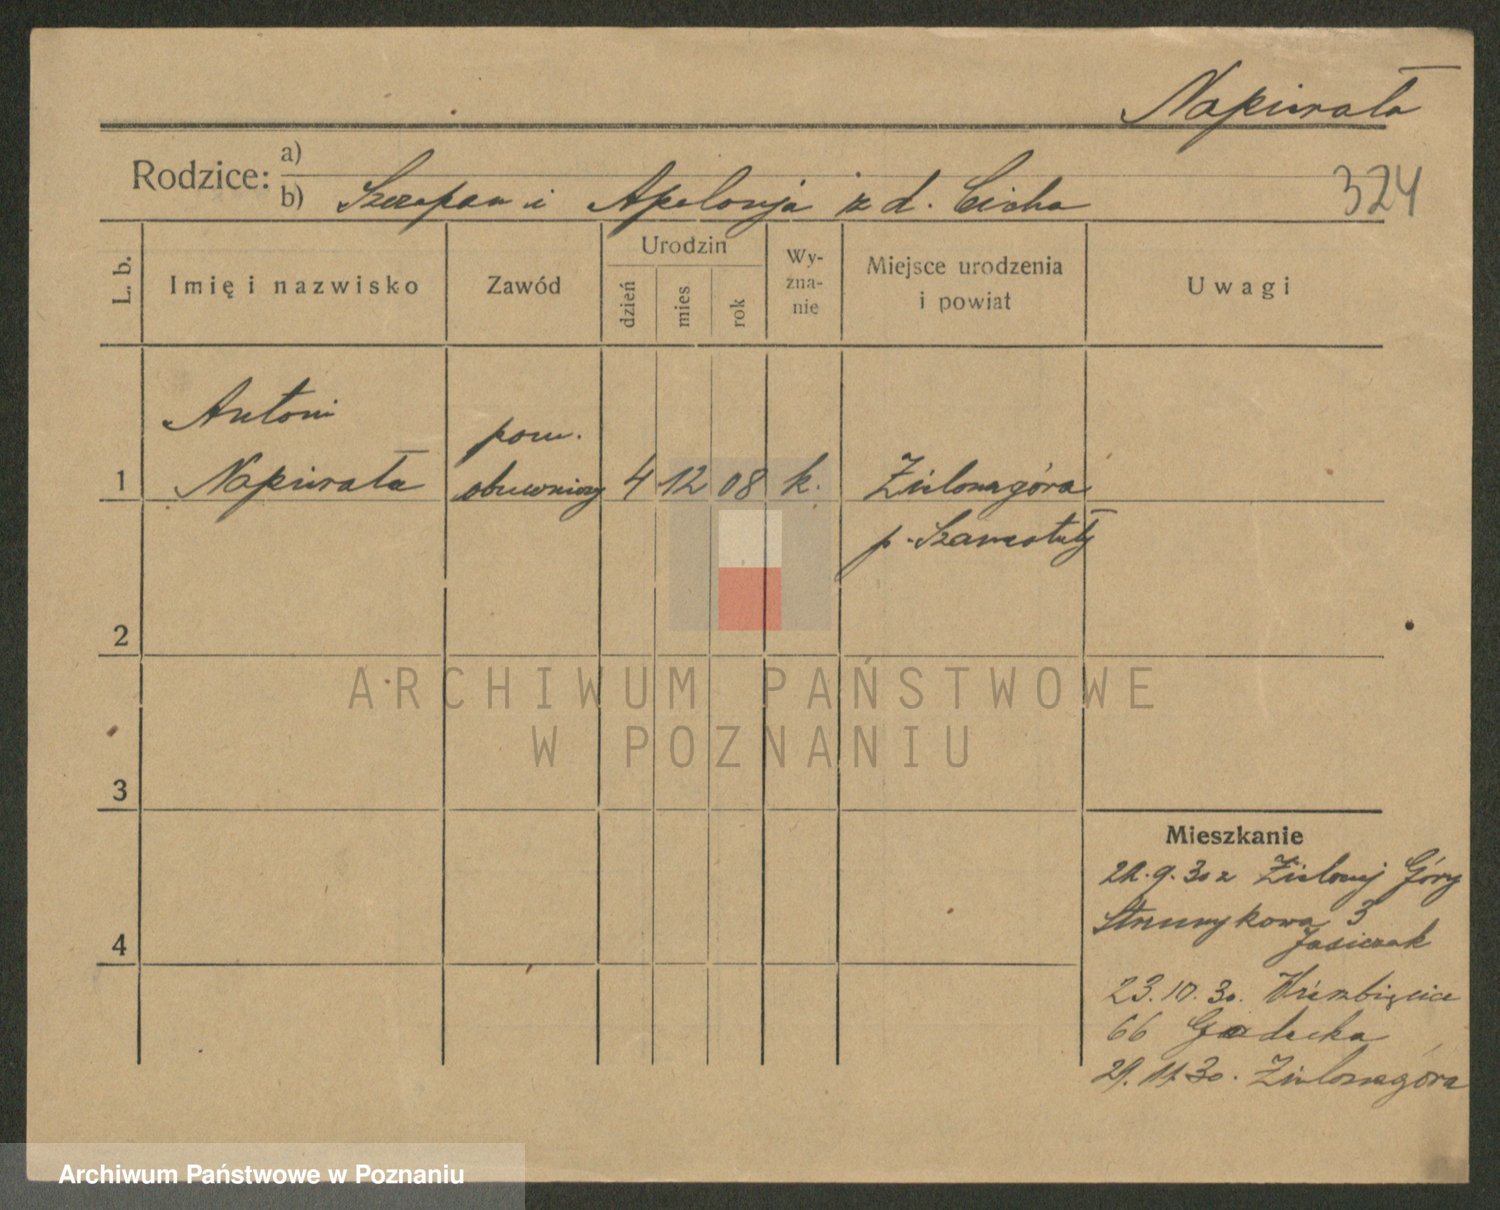 Napierała
Rodzice: a)
b) Szczepan i Apelonja z d. Cicha
324
L. b.
Imię i nazwisko
Zawód
Urodzin
dzień
mies
rok
Wy-
zna-
nie
Miejsce urodzenia
i powiat
Uwagi
Antoni
Napierała
pom.
obuwniczy
1
4
12
08
k.
Zielonagóra
p. Szamotuły
2
3
4
ARCHIWUM PAŃSTWOWE
W POZNANIU
Mieszkanie
22.9.30 z Zielonej Góry
Strumykowa 3
Jasiczak
23.10.30. Wierzbięcice
66
29.11.30. Zielonagóra
Archiwum Państwowe w Poznaniu